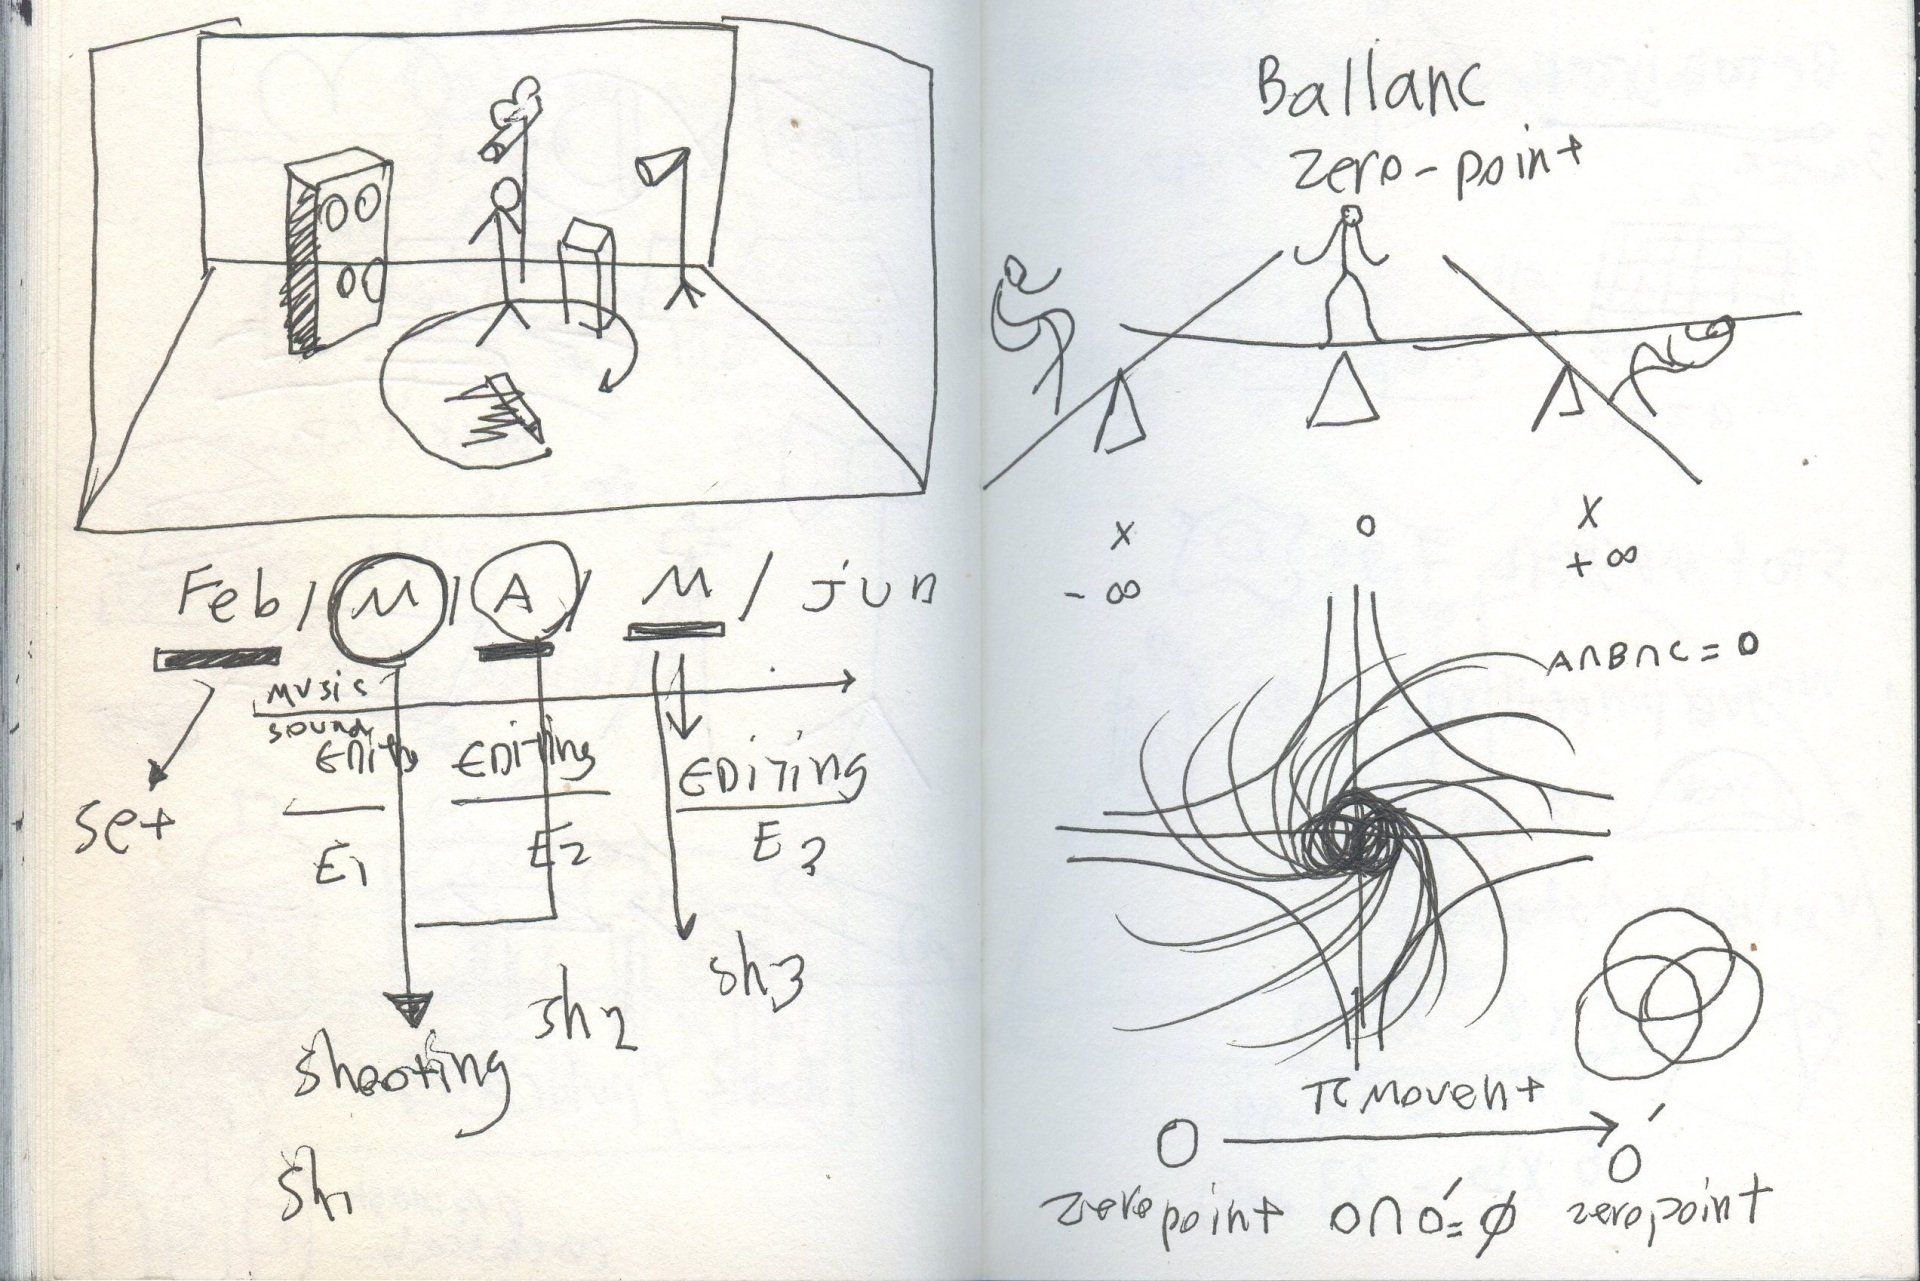 Feb / M / A / M / jun
music
sound
EDiting
EDiTing
set
E1
E2
E3
sh3
sh2
shooting
sh1
Ballanc
zero-point
x
o
x
- ∞
+ ∞
A∩B∩C = 0
π movent
O
O′
zero point
O∩O′=∅
zero point